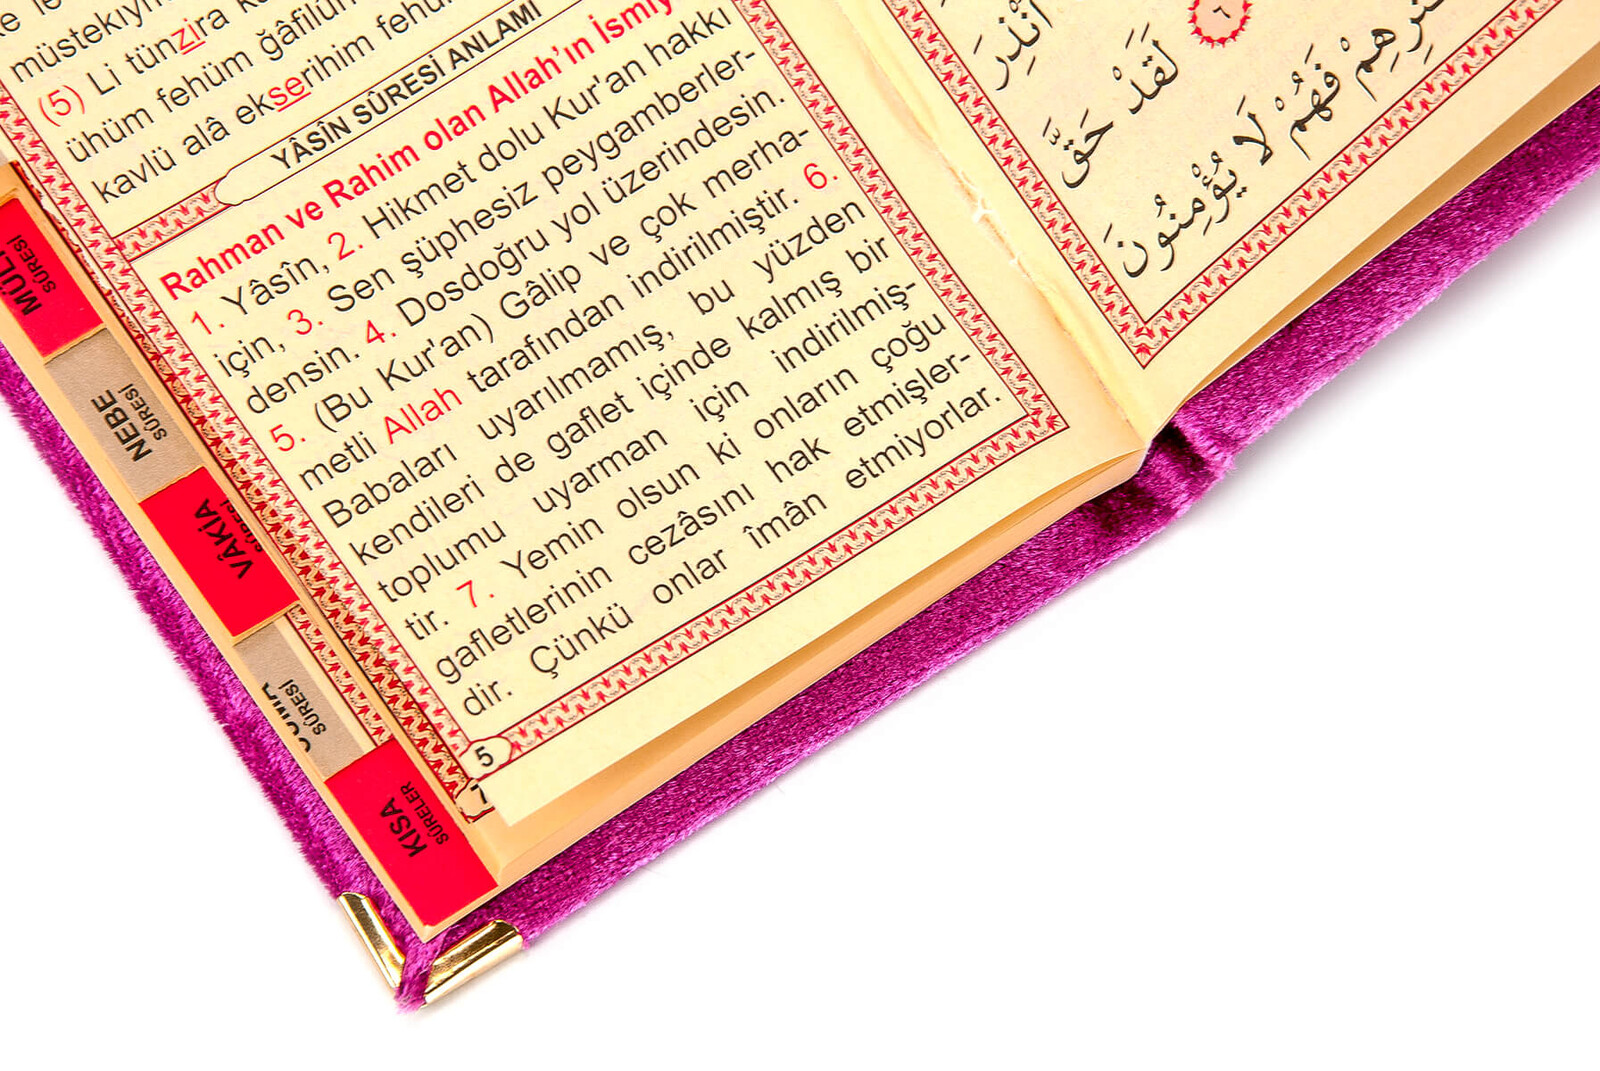 müstekıym
(5) Li tünzira
ühüm fehüm ğâfilûn
kavlü alâ ekserihim fehüm
YÂSÎN SÛRESİ ANLAMI
Rahman ve Rahim olan Allah'ın İsmiy
1. Yâsîn, 2. Hikmet dolu Kur'an hakkı
için, 3. Sen şüphesiz peygamberler-
densin. 4. Dosdoğru yol üzerindesin.
5. (Bu Kur'an) Gâlip ve çok merha-
metli Allah tarafından indirilmiştir. 6.
Babaları uyarılmamış, bu yüzden
kendileri de gaflet içinde kalmış bir
toplumu uyarman için indirilmiş-
tir. 7. Yemin olsun ki onların çoğu
gafletlerinin cezâsını hak etmişler-
dir. Çünkü onlar îmân etmiyorlar.
5
SÛRESİ
NEBE
SÛRESİ
VÂKİA
SÛRESİ
KISA
SÛRELER
اُنْذِرَ
٦
لَقَدْ حَقَّ
فَهُمْ لَا يُؤْمِنُونَ